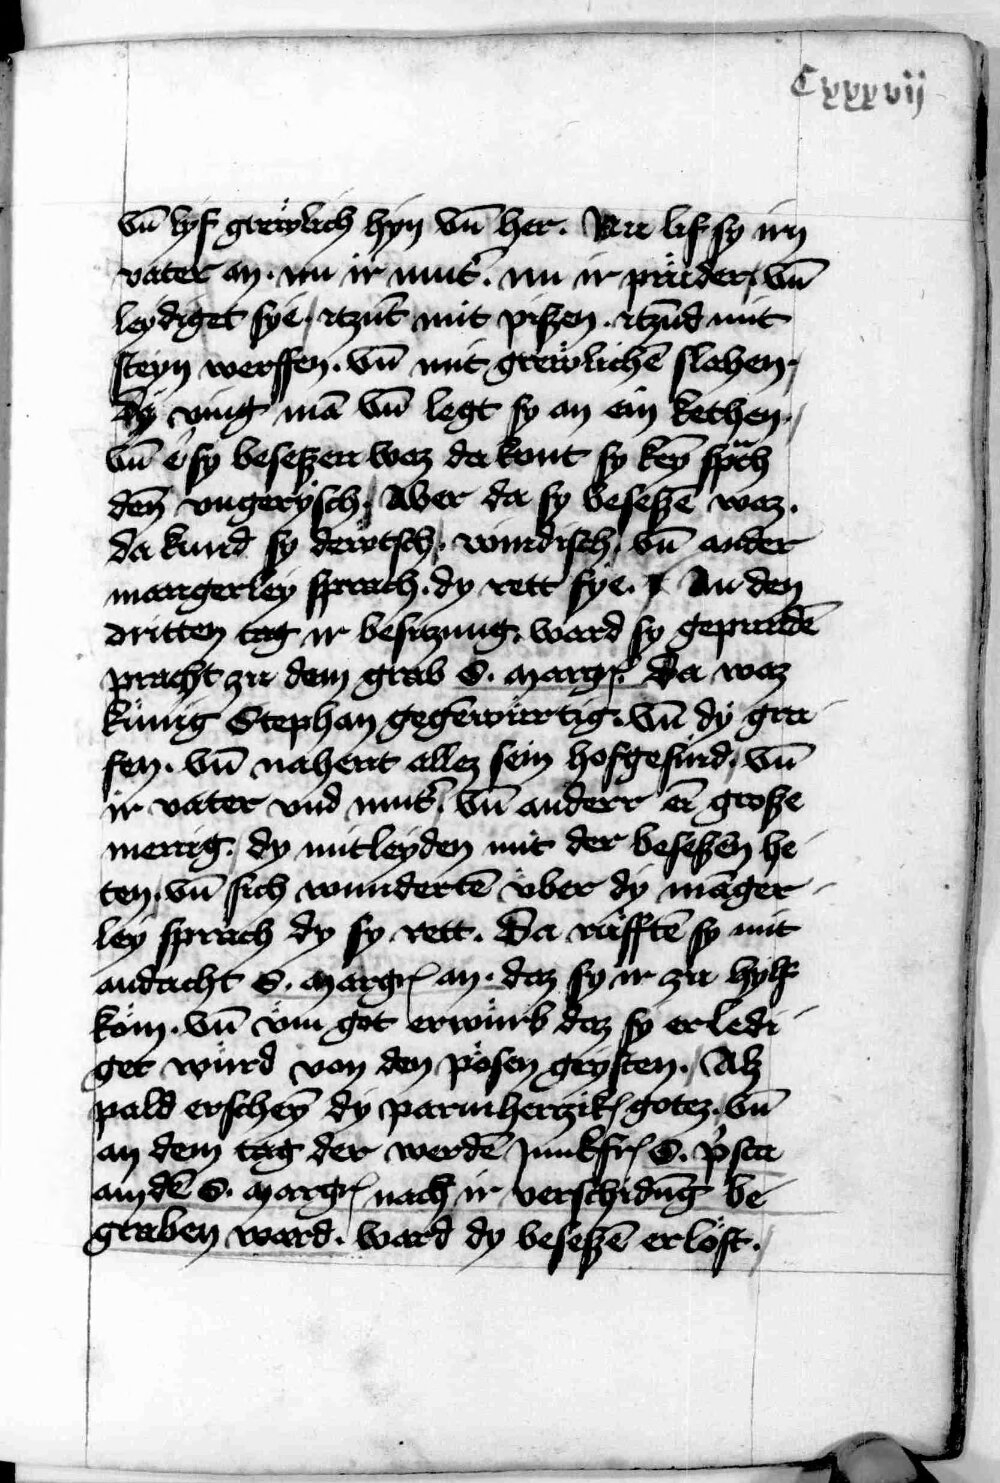 Cxxxvij
vn̄ lyf grewlich hyn vn̄ her. Nu lif sy irn
vater an. nu ir mut̉. nu ir prüder, vn̄
leydiget sye. itzūt mit piszen. itzūd mit
steyn werffen. vn̄ mit grewlichē slahen.
Dy ving mā vn̄ legt sy an ein kethen.
vn̄ e sy beseszen waz da kont sy key sprch
den̄ vngerysch. Aber da sy beseszē waz.
da kund sy dewtsch. windisch. vn̄ ander
mangerley sprach. dy rett sye. An den
dritten tag ir besitzung. ward sy gepundē
pracht zu dem grab S. margr. Da waz
künig Stephan gegewürtig. vn̄ dy gra
fen. vn̄ nahent allez sein hofgesind. vn̄
ir vater vnd mut̉. vn̄ anderr ei grosze
menig. dy mitleyden mit der beseszen he
ten. vn̄ sich wundertē über dy māger
ley sprach dy sy rett. Da rüfftē sy mit
andacht S. margr an. daz sy ir zu hylf
köm. vn̄ vm got erwürb daz sy erledi
get würd von den pösen geysten. Alz
pald erscheȳ dy parmhertzik gotez. vn̄
an dem tag der werdē junkfr S. p̉sca
an dē S. margr nach ir verschidūg be
graben ward. ward dy beseszē erlöst.